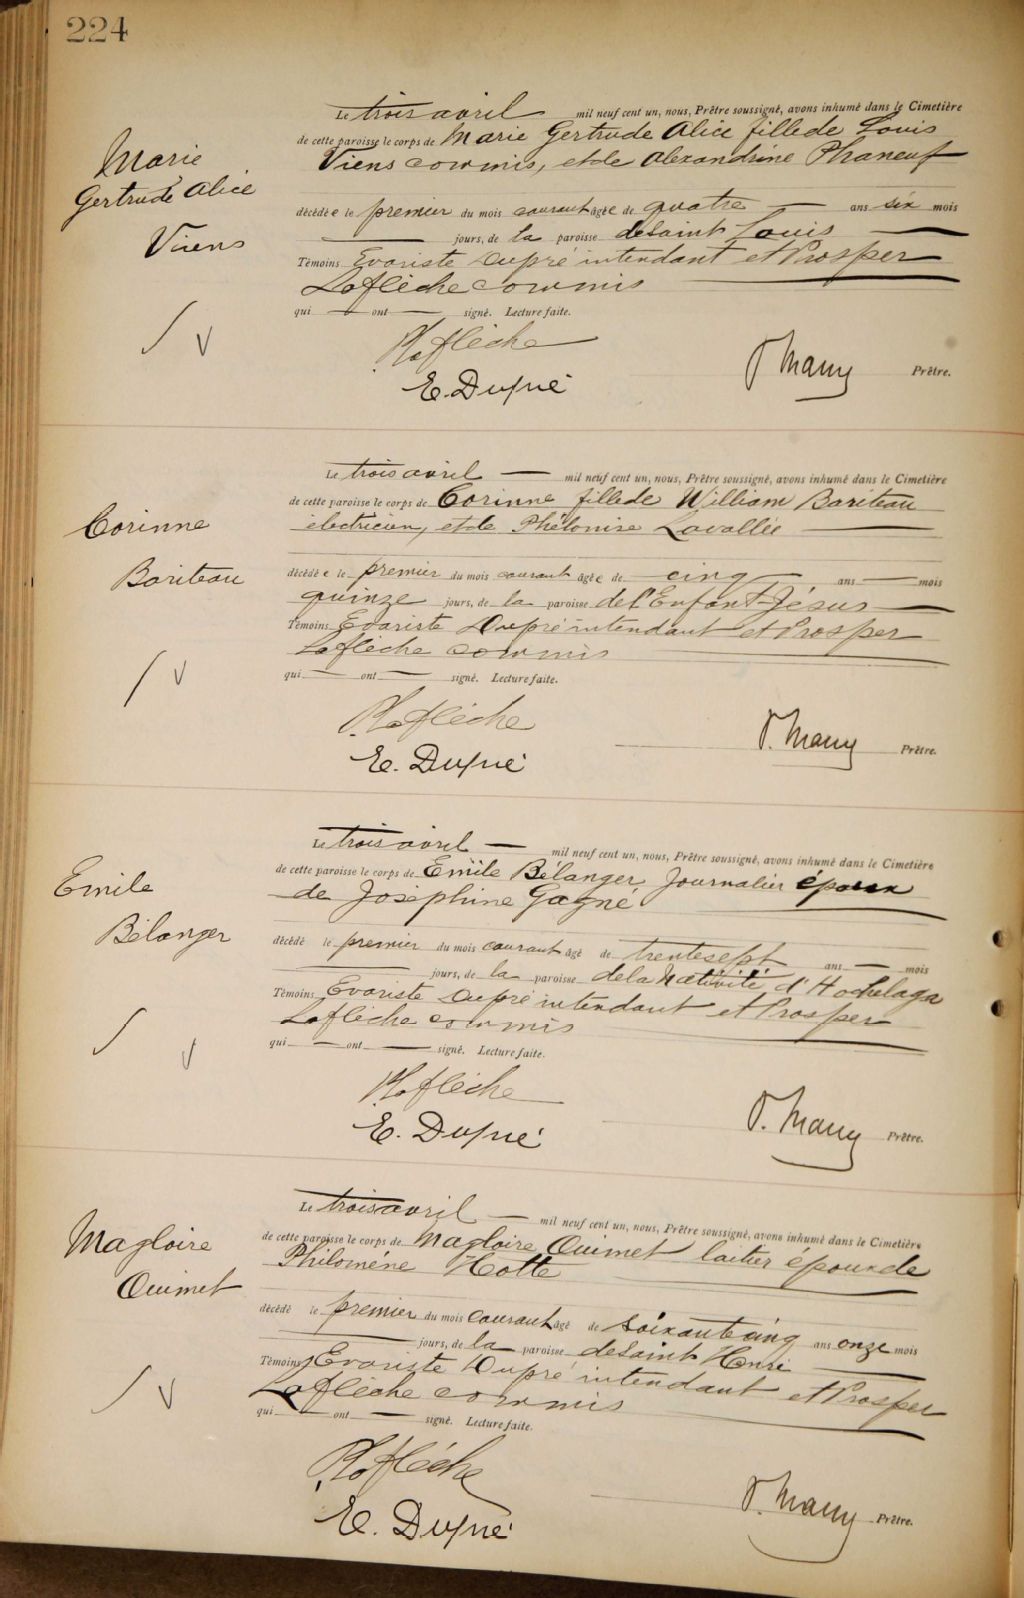 224
Marie
Gertrude Alice
Viens
Le trois avril mil neuf cent un, nous, Prêtre soussigné, avons inhumé dans le Cimetière
de cette paroisse le corps de Marie Gertrude Alice fille de Louis
Viens commis, et de Alexandrine Phaneuf
décédée le premier du mois courant âgée de quatre — ans six mois
— jours, de la paroisse de Saint Louis —
Témoins Evariste Dupré intendant et Prosper
Laflèche commis
qui — ont — signé. Lecture faite.
P. Laflèche
E. Dupré
Prêtre.
Corinne
Bariteau
Le trois avril — mil neuf cent un, nous, Prêtre soussigné, avons inhumé dans le Cimetière
de cette paroisse le corps de Corinne fille de William Bariteau
électricien, et de Phélonise Lavallée
décédée le premier du mois courant âgée de cinq — ans — mois
quinze jours, de la paroisse de l'Enfant-Jésus —
Témoins Evariste Dupré intendant et Prosper
Laflèche commis
qui — ont — signé. Lecture faite.
P. Laflèche
E. Dupré
Prêtre.
Emile
Bélanger
Le trois avril — mil neuf cent un, nous, Prêtre soussigné, avons inhumé dans le Cimetière
de cette paroisse le corps de Emile Bélanger, journalier époux
de Joséphine Gagné
décédé le premier du mois courant âgé de trente sept ans — mois
— jours, de la paroisse de la Nativité d'Hochelaga
Témoins Evariste Dupré intendant et Prosper
Laflèche commis
qui — ont — signé. Lecture faite.
P. Laflèche
E. Dupré
Prêtre.
Magloire
Ouimet
Le trois avril — mil neuf cent un, nous, Prêtre soussigné, avons inhumé dans le Cimetière
de cette paroisse le corps de Magloire Ouimet laitier époux de
Philomène Hotte
décédé le premier du mois courant âgé de soixante cinq ans onze mois
— jours, de la paroisse de Saint Henri —
Témoins Evariste Dupré intendant et Prosper
Laflèche commis
qui — ont — signé. Lecture faite.
P. Laflèche
E. Dupré
Prêtre.